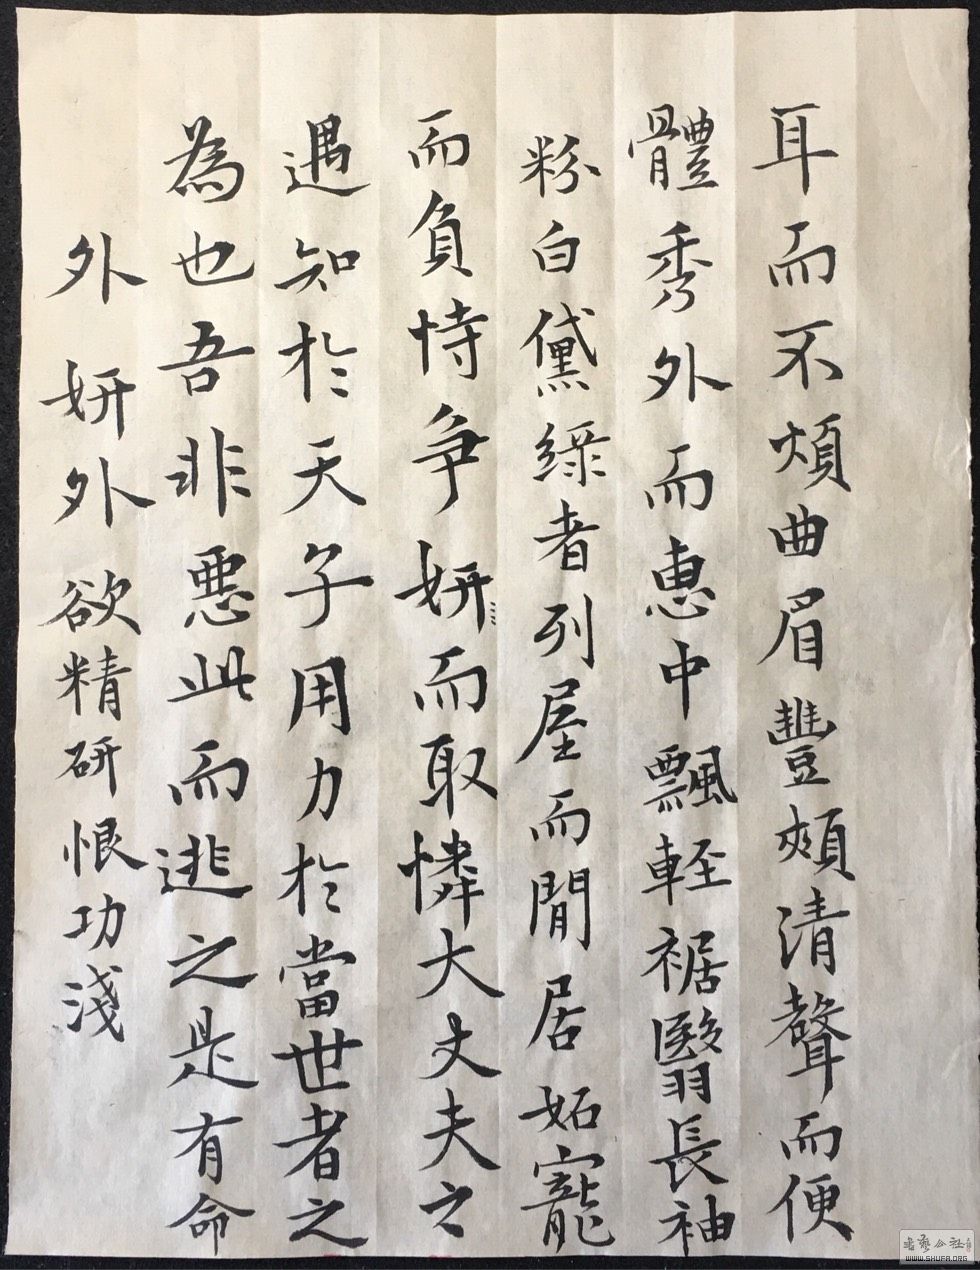 耳而不煩曲眉豐頰清聲而便
體秀外而惠中飄輕裾翳長袖
粉白黛綠者列屋而閒居妬寵
而負恃爭妍而取憐大丈夫之
遇知於天子用力於當世者之
為也吾非惡此而逃之是有命
外妍外欲精研恨功淺
WWW.SHUFA.ORG